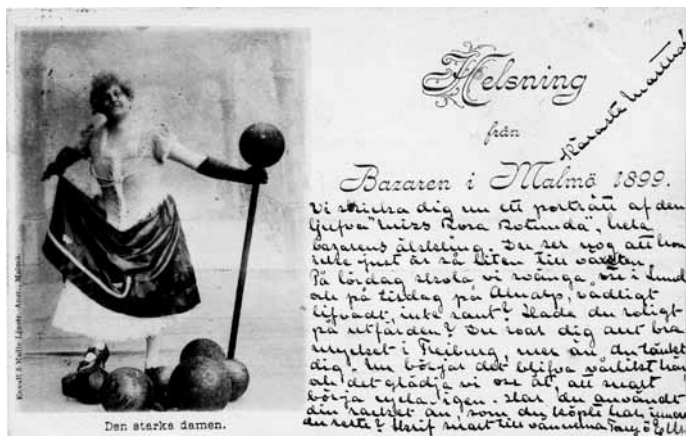 Helsning
från
Bazaren i Malmö 1899.
Käraste
Vi skicka dig nu ett porträtt af den
ljufva "Miss Rora Rotunda", hela
bazarens älskling. Du ser nog att hon
icke just är så liten till växten.
På lördag skola vi svänga oss i Lund
och på tisdag på Alnarp, vådligt
lifvadt, inte sant? Hade du roligt
på utfärden? Du roar dig ant bra
mycket i Freiburg, mer än du tänkt
dig. Nu börjar det blifva vårlikt här
och det glädja vi oss åt, att snart
börja cykla igen. Har du användt
din racket än, som du köpte här innan
du reste? Skrif snart till vännerna
Den starka damen.